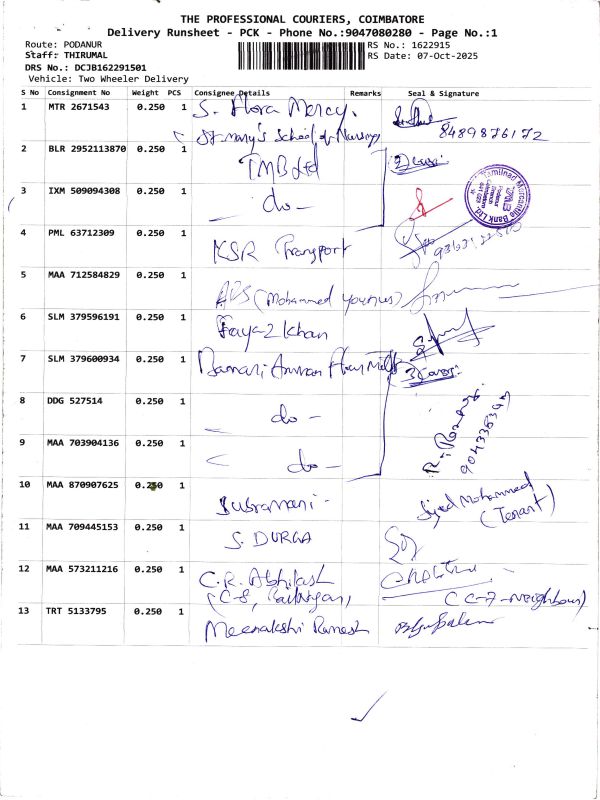 THE PROFESSIONAL COURIERS, COIMBATORE
Delivery Runsheet - PCK - Phone No.:9047080280 - Page No.:1
Route: PODANUR
RS No.: 1622915
Staff: THIRUMAL
RS Date: 07-Oct-2025
DRS No.: DCJB162291501
Vehicle: Two Wheeler Delivery
S No Consignment No Weight PCS Consignee Details Remarks Seal & Signature
1 MTR 2671543 0.250 1 S. Flora Mercy.
St. Mary's School of Nursing 8489876172
2 BLR 2952113870 0.250 1 TMB Ltd 2 Covers
3 IXM 509094308 0.250 1 - do -
Tamilnad Mercantile Bank Ltd.
Podanur
Branch
Coimbatore
4 PML 63712309 0.250 1 KSR Transport
5 MAA 712584829 0.250 1 (Mohammed Younus)
6 SLM 379596191 0.250 1 Fayaz Khan
7 SLM 379600934 0.250 1 Amman 3 Covers
8 DDG 527514 0.250 1 - do -
9 MAA 703904136 0.250 1 - do -
10 MAA 870907625 0.250 1 Subramani - Syed Mohammed
(Tenant)
11 MAA 709445153 0.250 1 S. DURGA
12 MAA 573211216 0.250 1 C.R. Abhilash
(C-8, (C-7-Neighbour)
13 TRT 5133795 0.250 1 Meenakshi Ramesh